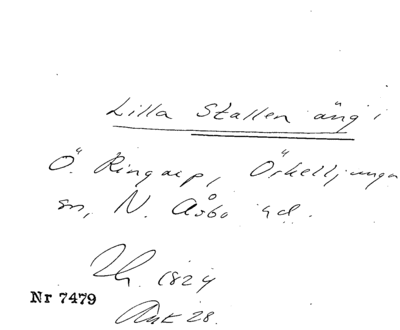 Lilla Stallen äng i
Ö. Ringarp, Örkelljunga
sn, N. Åsbo hd.
1824
Nr 7479
Akt 28.